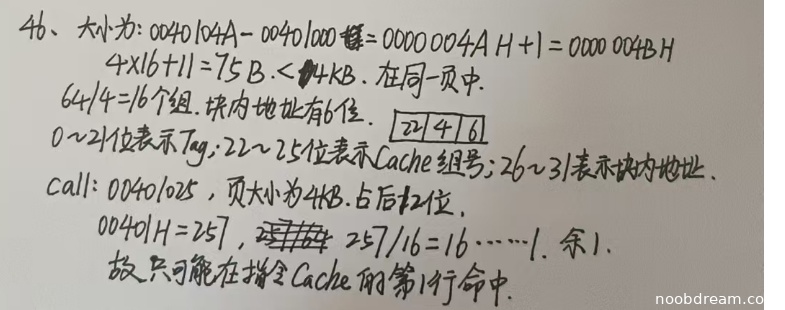 46、大小为: 0040104A - 00401000 = 0000004A H + 1 = 0000 004B H
4×16+11=75 B. < 4KB. 在同一页中.
64/4=16个组. 块内地址有6位. 22 4 6
0~21位表示Tag; 22~25位表示Cache组号; 26~31表示块内地址.
Call: 00401025, 页大小为4KB. 占后12位.
00401H=257, 257/16=16……1. 余1.
故只可能在指令Cache的第1行命中.
noobdream.co